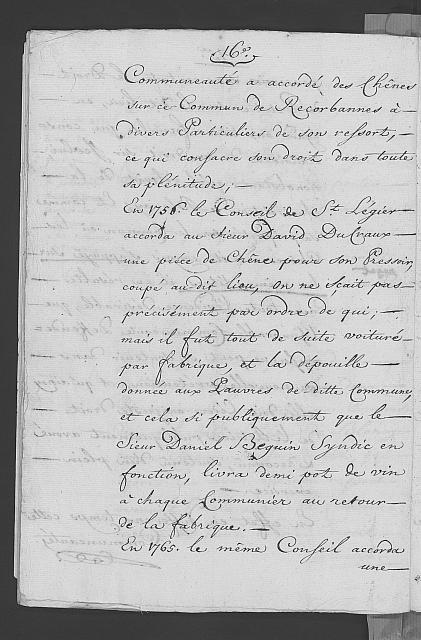 16.
Communeauté a accordé des Chênes
sur ce Commun de Recorbannes à
divers Particuliers de son ressort, —
ce qui consacre son droit dans toute
sa plénitude; —
En 1756. le Conseil de St. Légier
accorda au Sieur David DuCraux
une piéce de Chêne pour son Pressoir,
coupé au dit lieu, on ne sçait pas
précisément par ordre de qui; —
mais il fut tout de suite voituré
par fabrique, et la dépouille
donnée aux Pauvres de ditte Commune,
et cela si publiquement que le
Sieur Daniel Beguin Syndic en
fonction, livra demi pot de vin
à chaque Communier au retour
de la fabrique. —
En 1765. le même Conseil accorda
une